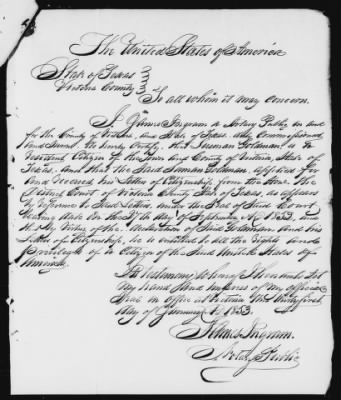 The United States of America
State of Texas
Victoria County
To all whom it may concern.
I, James Ingram a Notary Public in and
for the County of Victoria, and State of Texas duly Commissioned
and Sworn. Do hereby Certify, that Suman Goldman, is a
resident Citizen of the Town and County of Victoria, State of
Texas. And that the Said Suman Goldman. applied for
and received his Letter of Citizenship from the Hon. The
District Court of Victoria County State of Texas, as appears
by reference to Said Letter, under the Seal of Said Court
bearing date on the day of September AD 1853, and
that by Virtue of the declaration of Said Goldman, and his
Letter of Citizenship, he is entitled to all the Rights and
Privileges of a Citizen of the Said United States of
America.
In testimony whereof I hereunto Set
my hand and impress of my official
Seal in office at Victoria this thirty first
day of January AD 1853.
James Ingram.
Notary Public